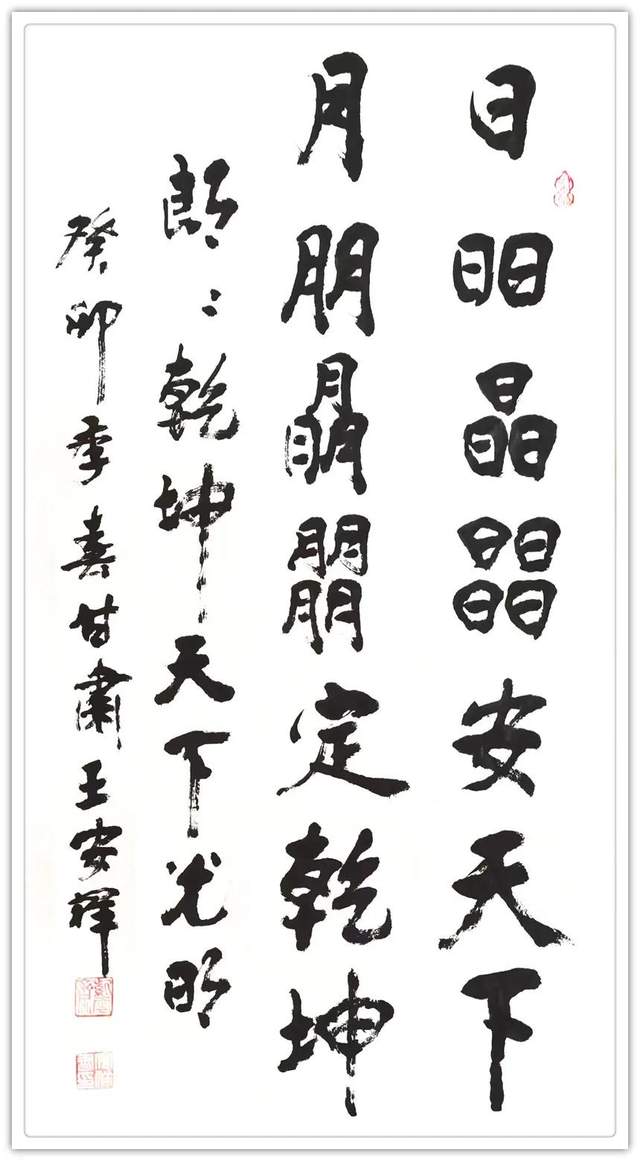 日昍晶𣊫安天下
月朋朤定乾坤
朗々乾坤天下光明
癸卯季甘肅王安